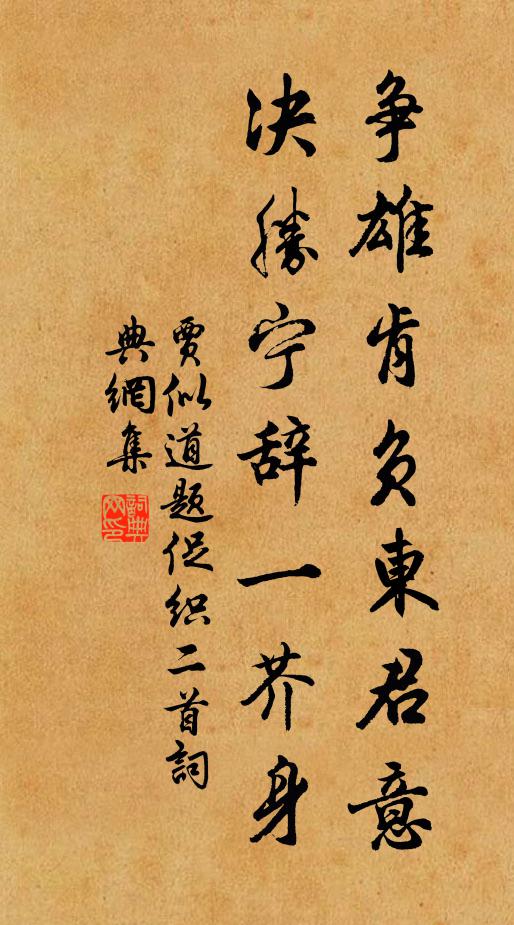 争雄肯负東君意
决勝宁辞一芥身
賈似道题促织二首詞
典網集
詞典网印